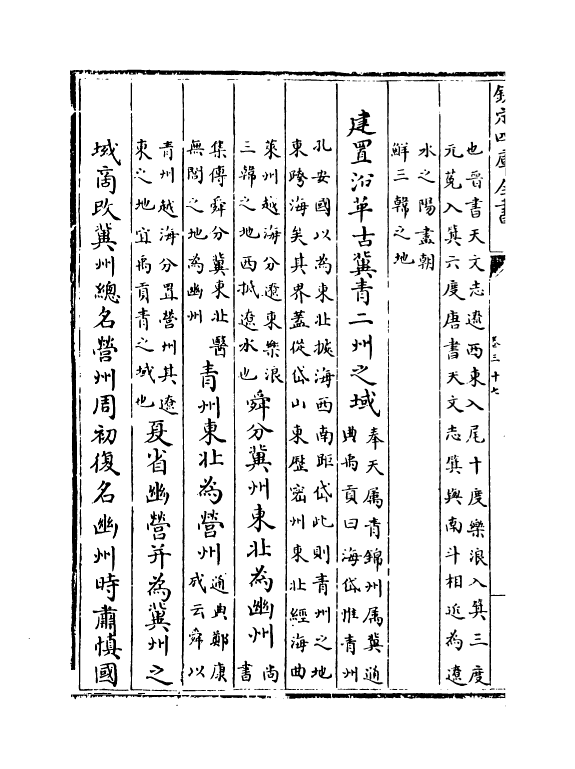 欽定四庫全書
卷三十七
也晉書天文志遼西東入尾十度樂浪入箕三度
元菟入箕六度唐書天文志箕與南斗相近為遼
水之陽盡朝
鮮三韓之地
建置沿革古冀青二州之域
奉天属青錦州属冀通
典禹貢曰海岱惟青州
孔安國以為東北據海西南距岱此則青州之地
東跨海矣其界蓋從岱山東歷密州東北經海曲
萊州越海分遼東樂浪
三韓之地西抵遼水也
舜分冀州東北為幽州
尚
書
集傳舜分冀東北醫
無閭之地為幽州
青州東北為營州
通典鄭康
成云舜以
青州越海分置營州其遼
東之地宜禹貢青之域也
夏省幽營并為冀州之
域商改冀州總名營州周初復名幽州時肅慎國